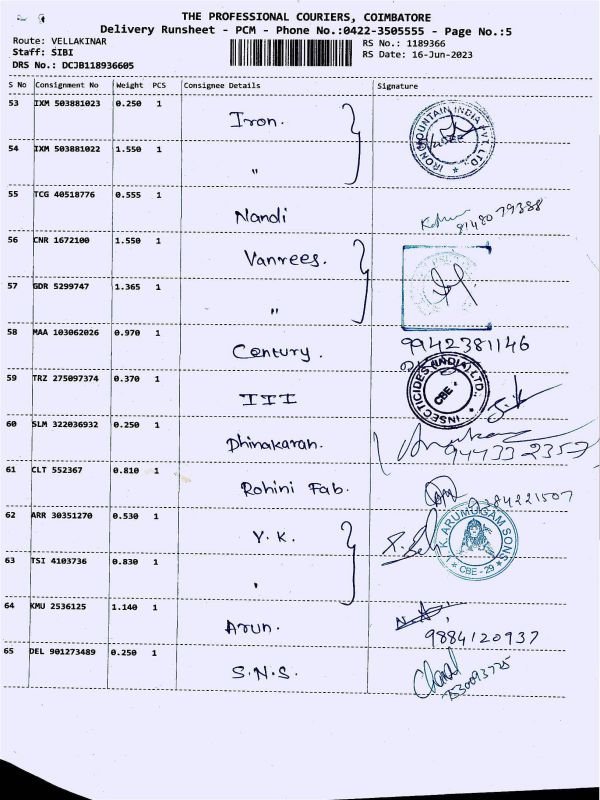 THE PROFESSIONAL COURIERS, COIMBATORE
Delivery Runsheet - PCM - Phone No.:0422-3505555 - Page No.:5
Route: VELLAKINAR
RS No.: 1189366
Staff: SIBI
RS Date: 16-Jun-2023
DRS No.: DCJB118936605
S No Consignment No Weight PCS Consignee Details Signature
53 IXM 503881023 0.250 1 Iron.
IRON MOUNTAIN INDIA PVT. LTD.
54 IXM 503881022 1.550 1 "
55 TCG 40518776 0.555 1 Nandi
9148079388
56 CNR 1672100 1.550 1 Vanrees.
57 GDR 5299747 1.365 1 "
58 MAA 103062026 0.970 1 Century.
9942381146
59 TRZ 275097374 0.370 1 III
INSECTICIDES (INDIA) LTD. CBE.
60 SLM 322036932 0.250 1 Dhinakaran.
9443323357
61 CLT 552367 0.810 1 Rohini Fab.
9284221507
62 ARR 30351270 0.530 1 Y.K.
ARUMUGAM SONS
CBE - 29
63 TSI 4103736 0.830 1 "
64 KMU 2536125 1.140 1 Arun.
9884120937
65 DEL 901273489 0.250 1 S.N.S.